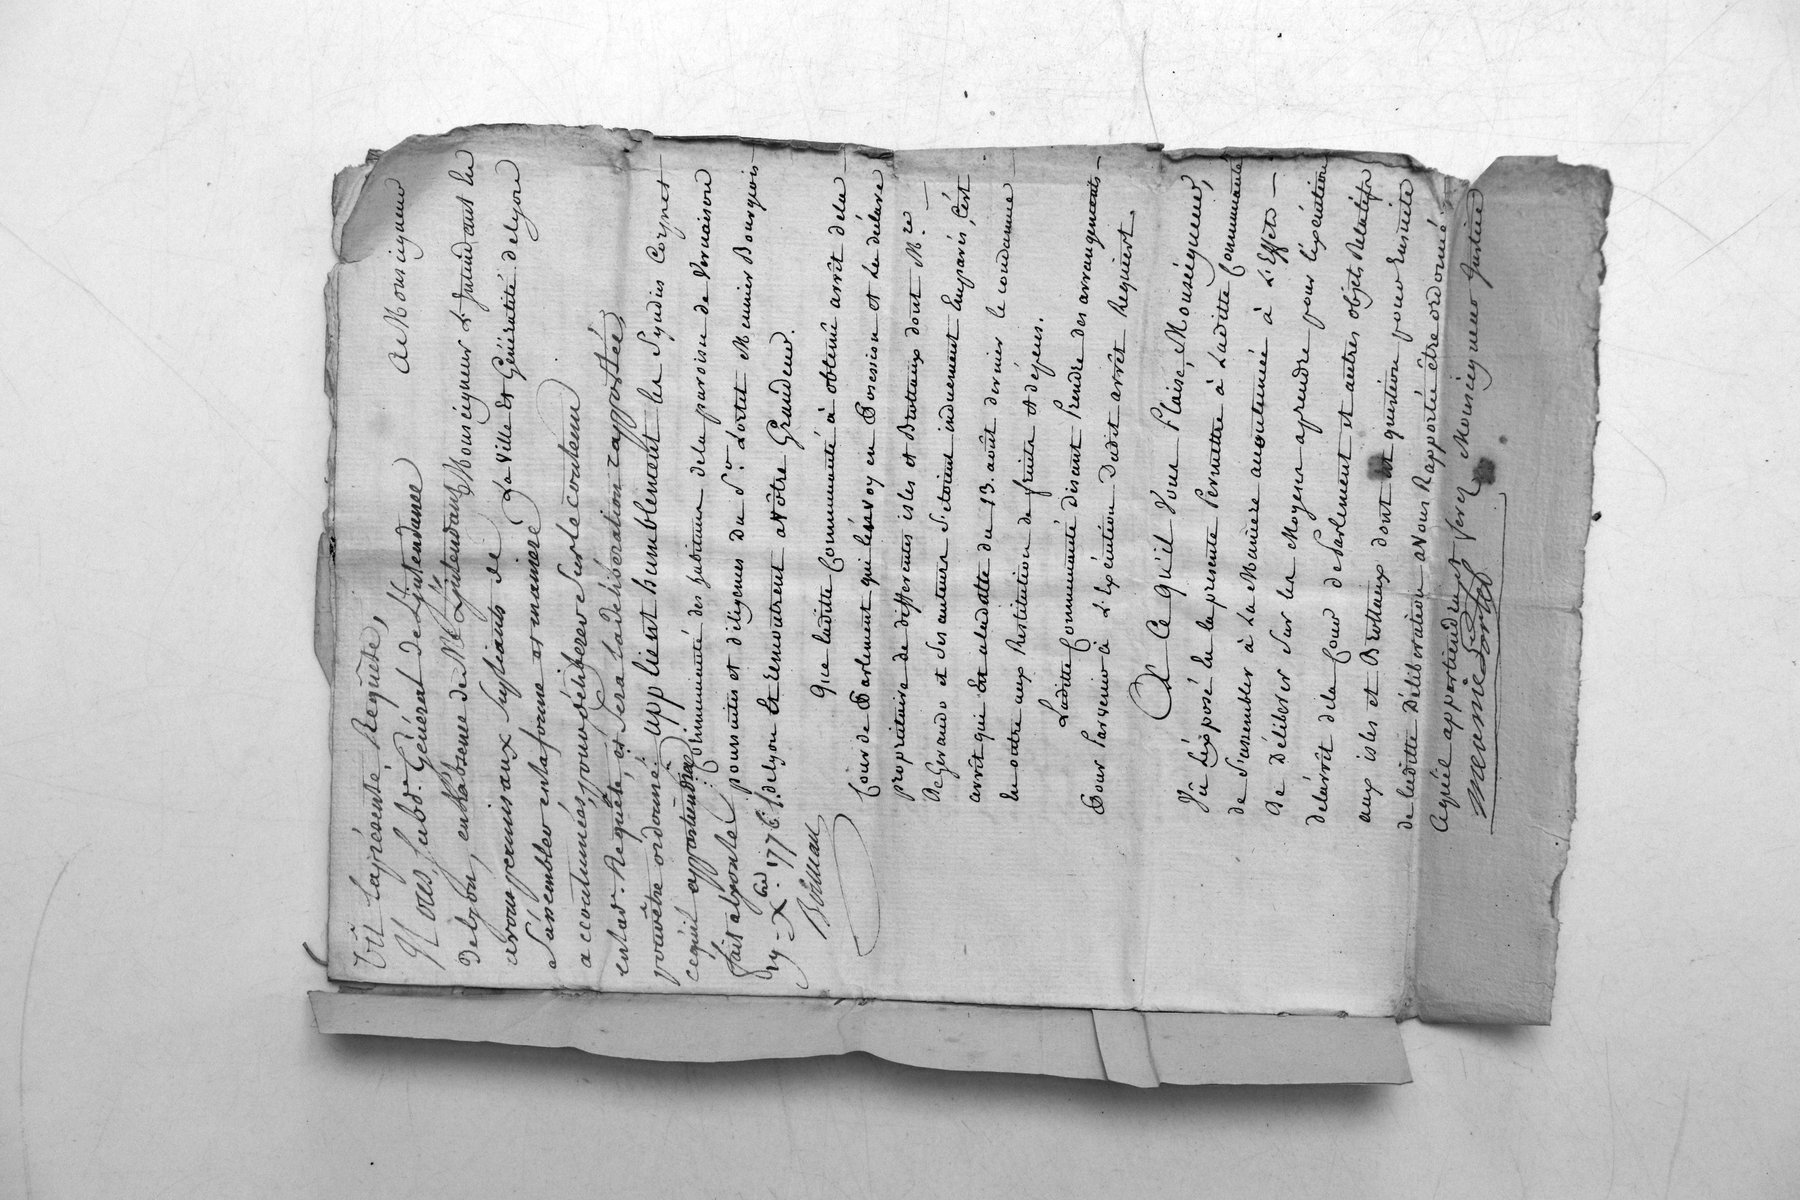 Vû La présenté Requête,
Nous, subd.r Général de L'jntendance
De Lyon, en L'absence de Mr. L'jntendant
avons permis aux suppliants de
s'assembler en la forme et maniere
accoutumées, pour délibérer sur le contenu
en lad.e Requête, et sera lad délibération rapportée
pour être ordonné
cequil appartiendra
fait a Lyon le
29 Xbre 1776 /.
A Monseigneur
Monseigneur L'Jntendant de
La Ville Et Généralité de Lyon
Supplient humblement les Syndics Corps et
Communauté des habitans de la paroisse de Vernaison
poursuites et diligences du Sr. Lortet Meunier Bourgeois
de Lyon Et remontrent a Vôtre Grandeur.
Que laditte Communauté à obtenu arrêt de la
Cour de Parlement qui les envoy en Possession et les déclare
propriétaire de differentes isles et Brotteaux dont M.re
De Gerando et Ses auteurs S'etoient induement Emparés, C'est
arrêt qui Est a la datte du 13. août dernier le condamne
en outre aux Restitution de fruits et dépens.
Laditte Communauté désirant Prendre des arrangements
Pour Parvenir à L'Exécution dudit arrêt Requiert.
A Ce qu'il Vous Plaise, Monseigneur,
Vû L'Exposé En la presente Permettre à Laditte Communauté
de S'assembler à La Maniere accoutumée à L'Effets
De Déliberer Sur les Moyens aprendre pour l'exécution
de l'arrêt de la Cour de Parlement et autres objets Relatifs
aux isles et Brotteaux dont est question pour Ensuite
de laditte Délibération a Vous Rapportée être ordonné
Cequ'il appartiendra et ferez Monseigneur Justice
meunier Lortet